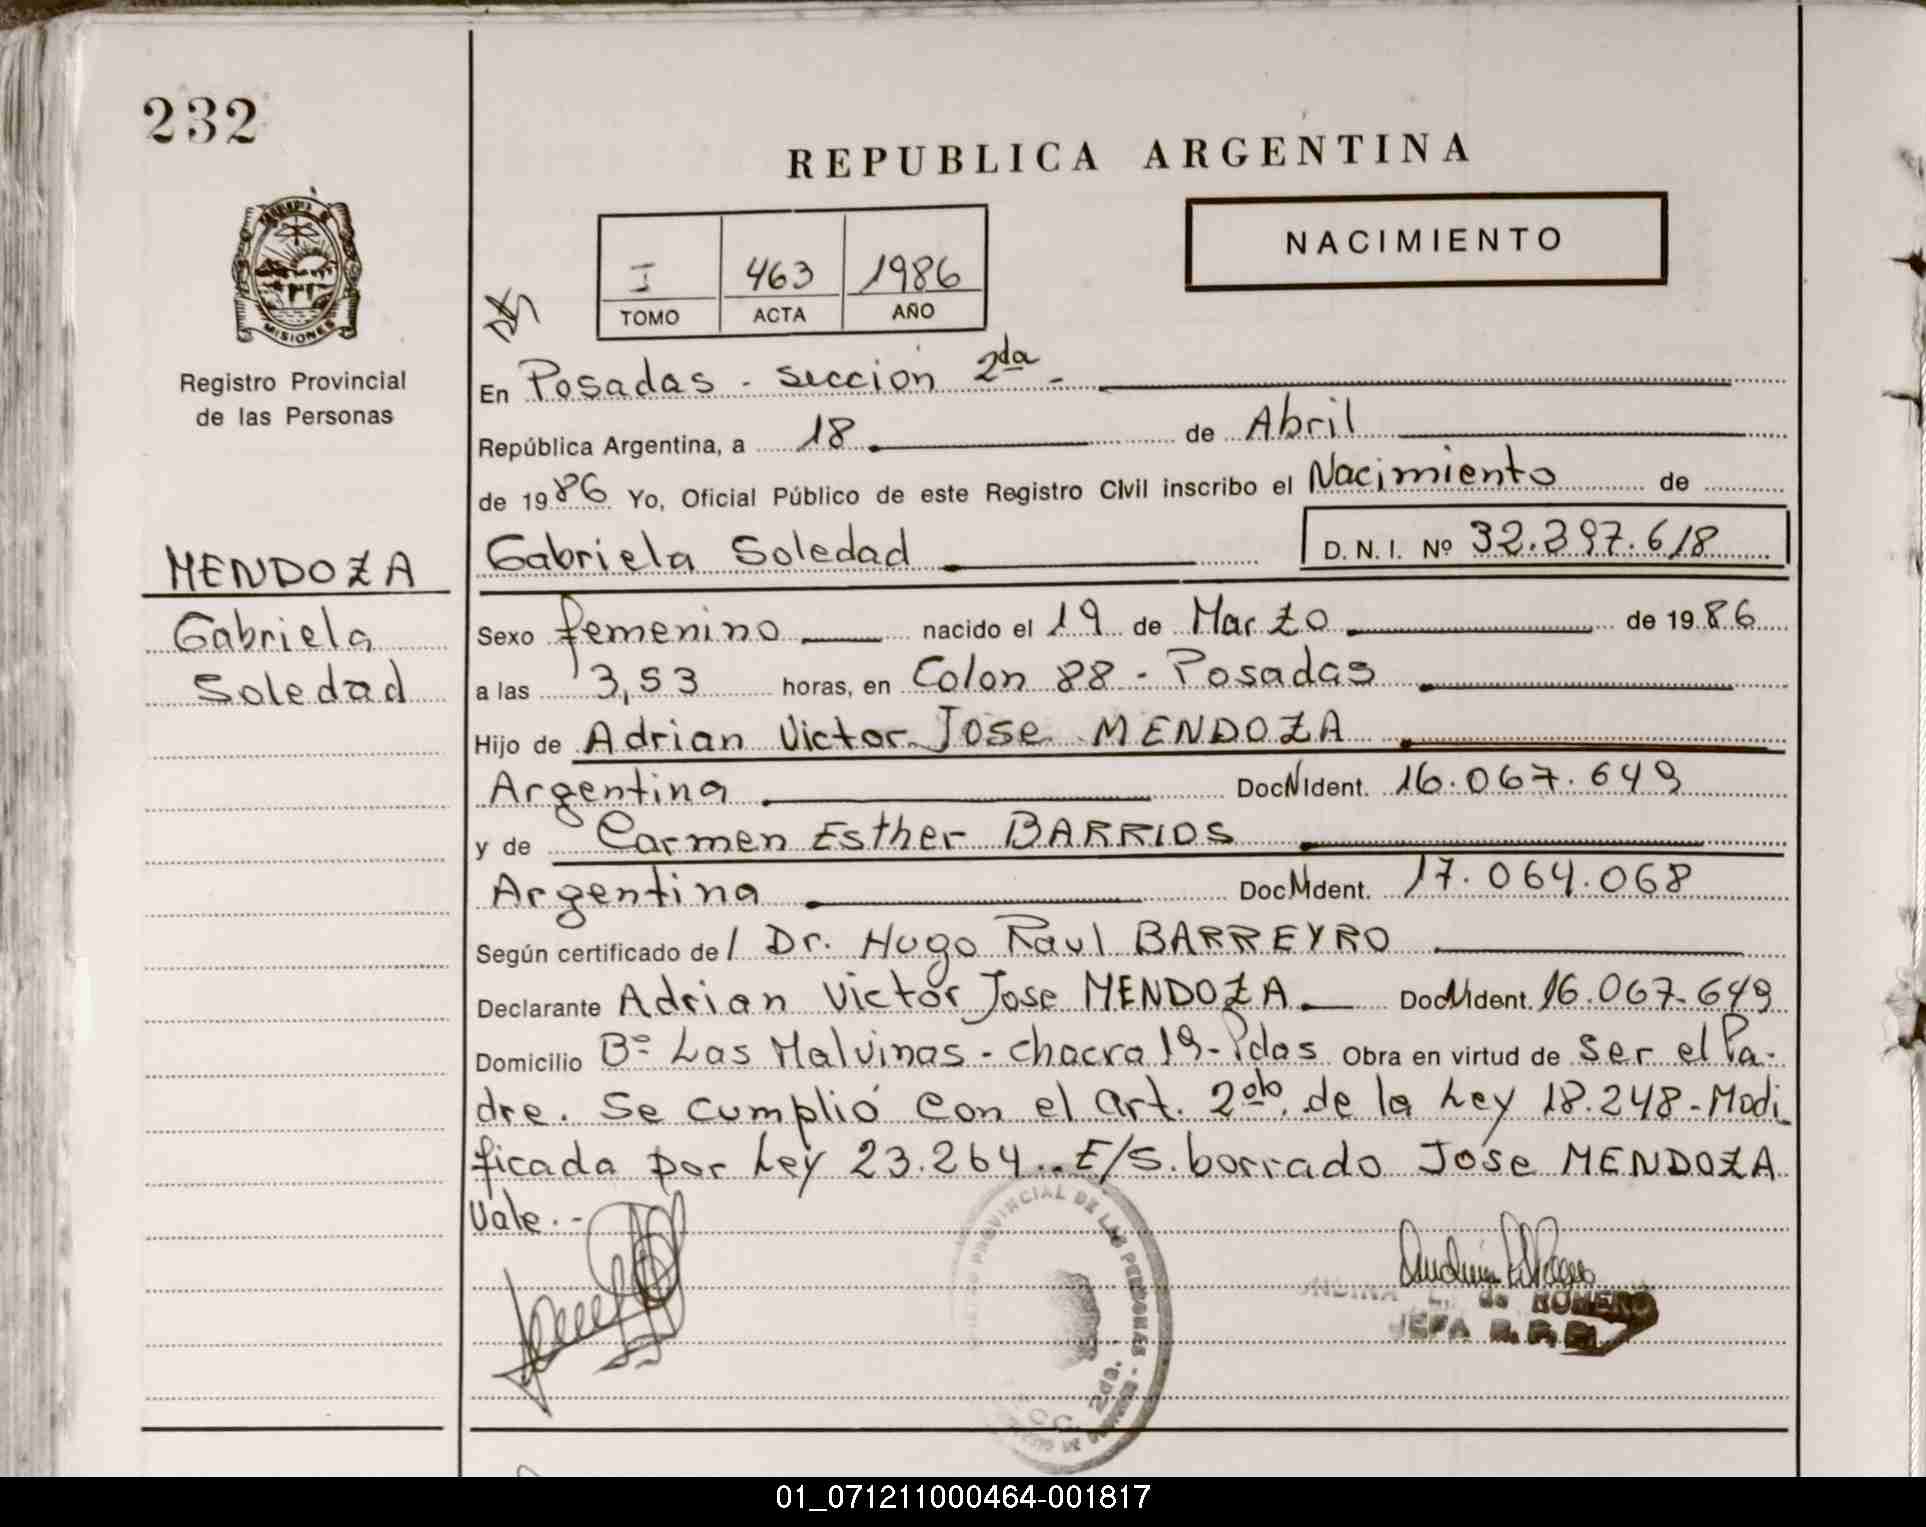 232
REPUBLICA ARGENTINA
NACIMIENTO
I 463 1986
TOMO ACTA AÑO
MISIONES
Registro Provincial
de las Personas
MENDOZA
Gabriela
Soledad
En Posadas - sección 2da -
República Argentina, a 18 de Abril
de 1986 Yo, Oficial Público de este Registro Civil inscribo el Nacimiento de
Gabriela Soledad D. N. I. Nº 32.397.618
Sexo femenino nacido el 19 de Marzo de 1986
a las 3,53 horas, en Colon 88 - Posadas
Hijo de Adrian Victor Jose MENDOZA
Argentina Doc N Ident. 16.067.649
y de Carmen Esther BARRIOS
Argentina Doc N Ident. 17.064.068
Según certificado de / Dr. Hugo Raul BARREYRO
Declarante Adrian Victor Jose MENDOZA Doc N Ident. 16.067.649
Domicilio Bº Las Malvinas - chacra 19 - Pdas Obra en virtud de ser el Pa-
dre. Se cumplió con el art. 2do. de la Ley 18.248 - Modi
ficada por Ley 23.264.. E/S. borrado Jose MENDOZA
Vale.-
PROVINCIAL DE LAS PERSONAS
2da.
de ROMERO
JEFA
01_071211000464-001817